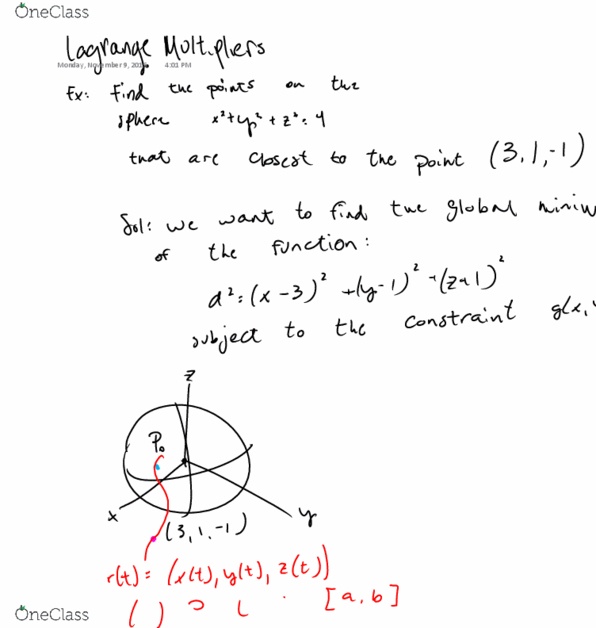 OneClass
Lagrange Multipliers
Monday, November 9, 4:01 PM
Ex: Find the points on the
sphere x²+y²+z²=4
that are closest to the point (3,1,-1)
Sol: we want to find the global minim
of the function:
d²=(x-3)²+(y-1)²+(z+1)²
subject to the constraint g(x,
z
P₀
x
y
(3,1,-1)
r(t)=(x(t),y(t),z(t))
[a,b]
OneClass